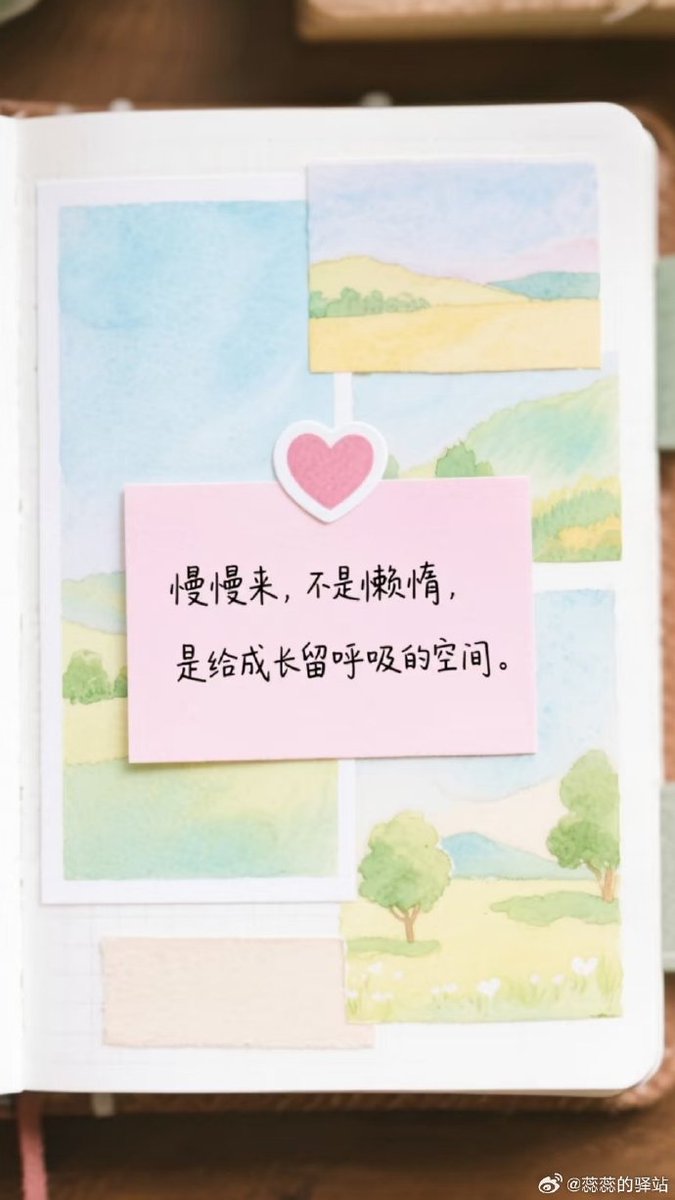 慢慢来，不是懒惰，
是给成长留呼吸的空间。
@蕊蕊的驿站